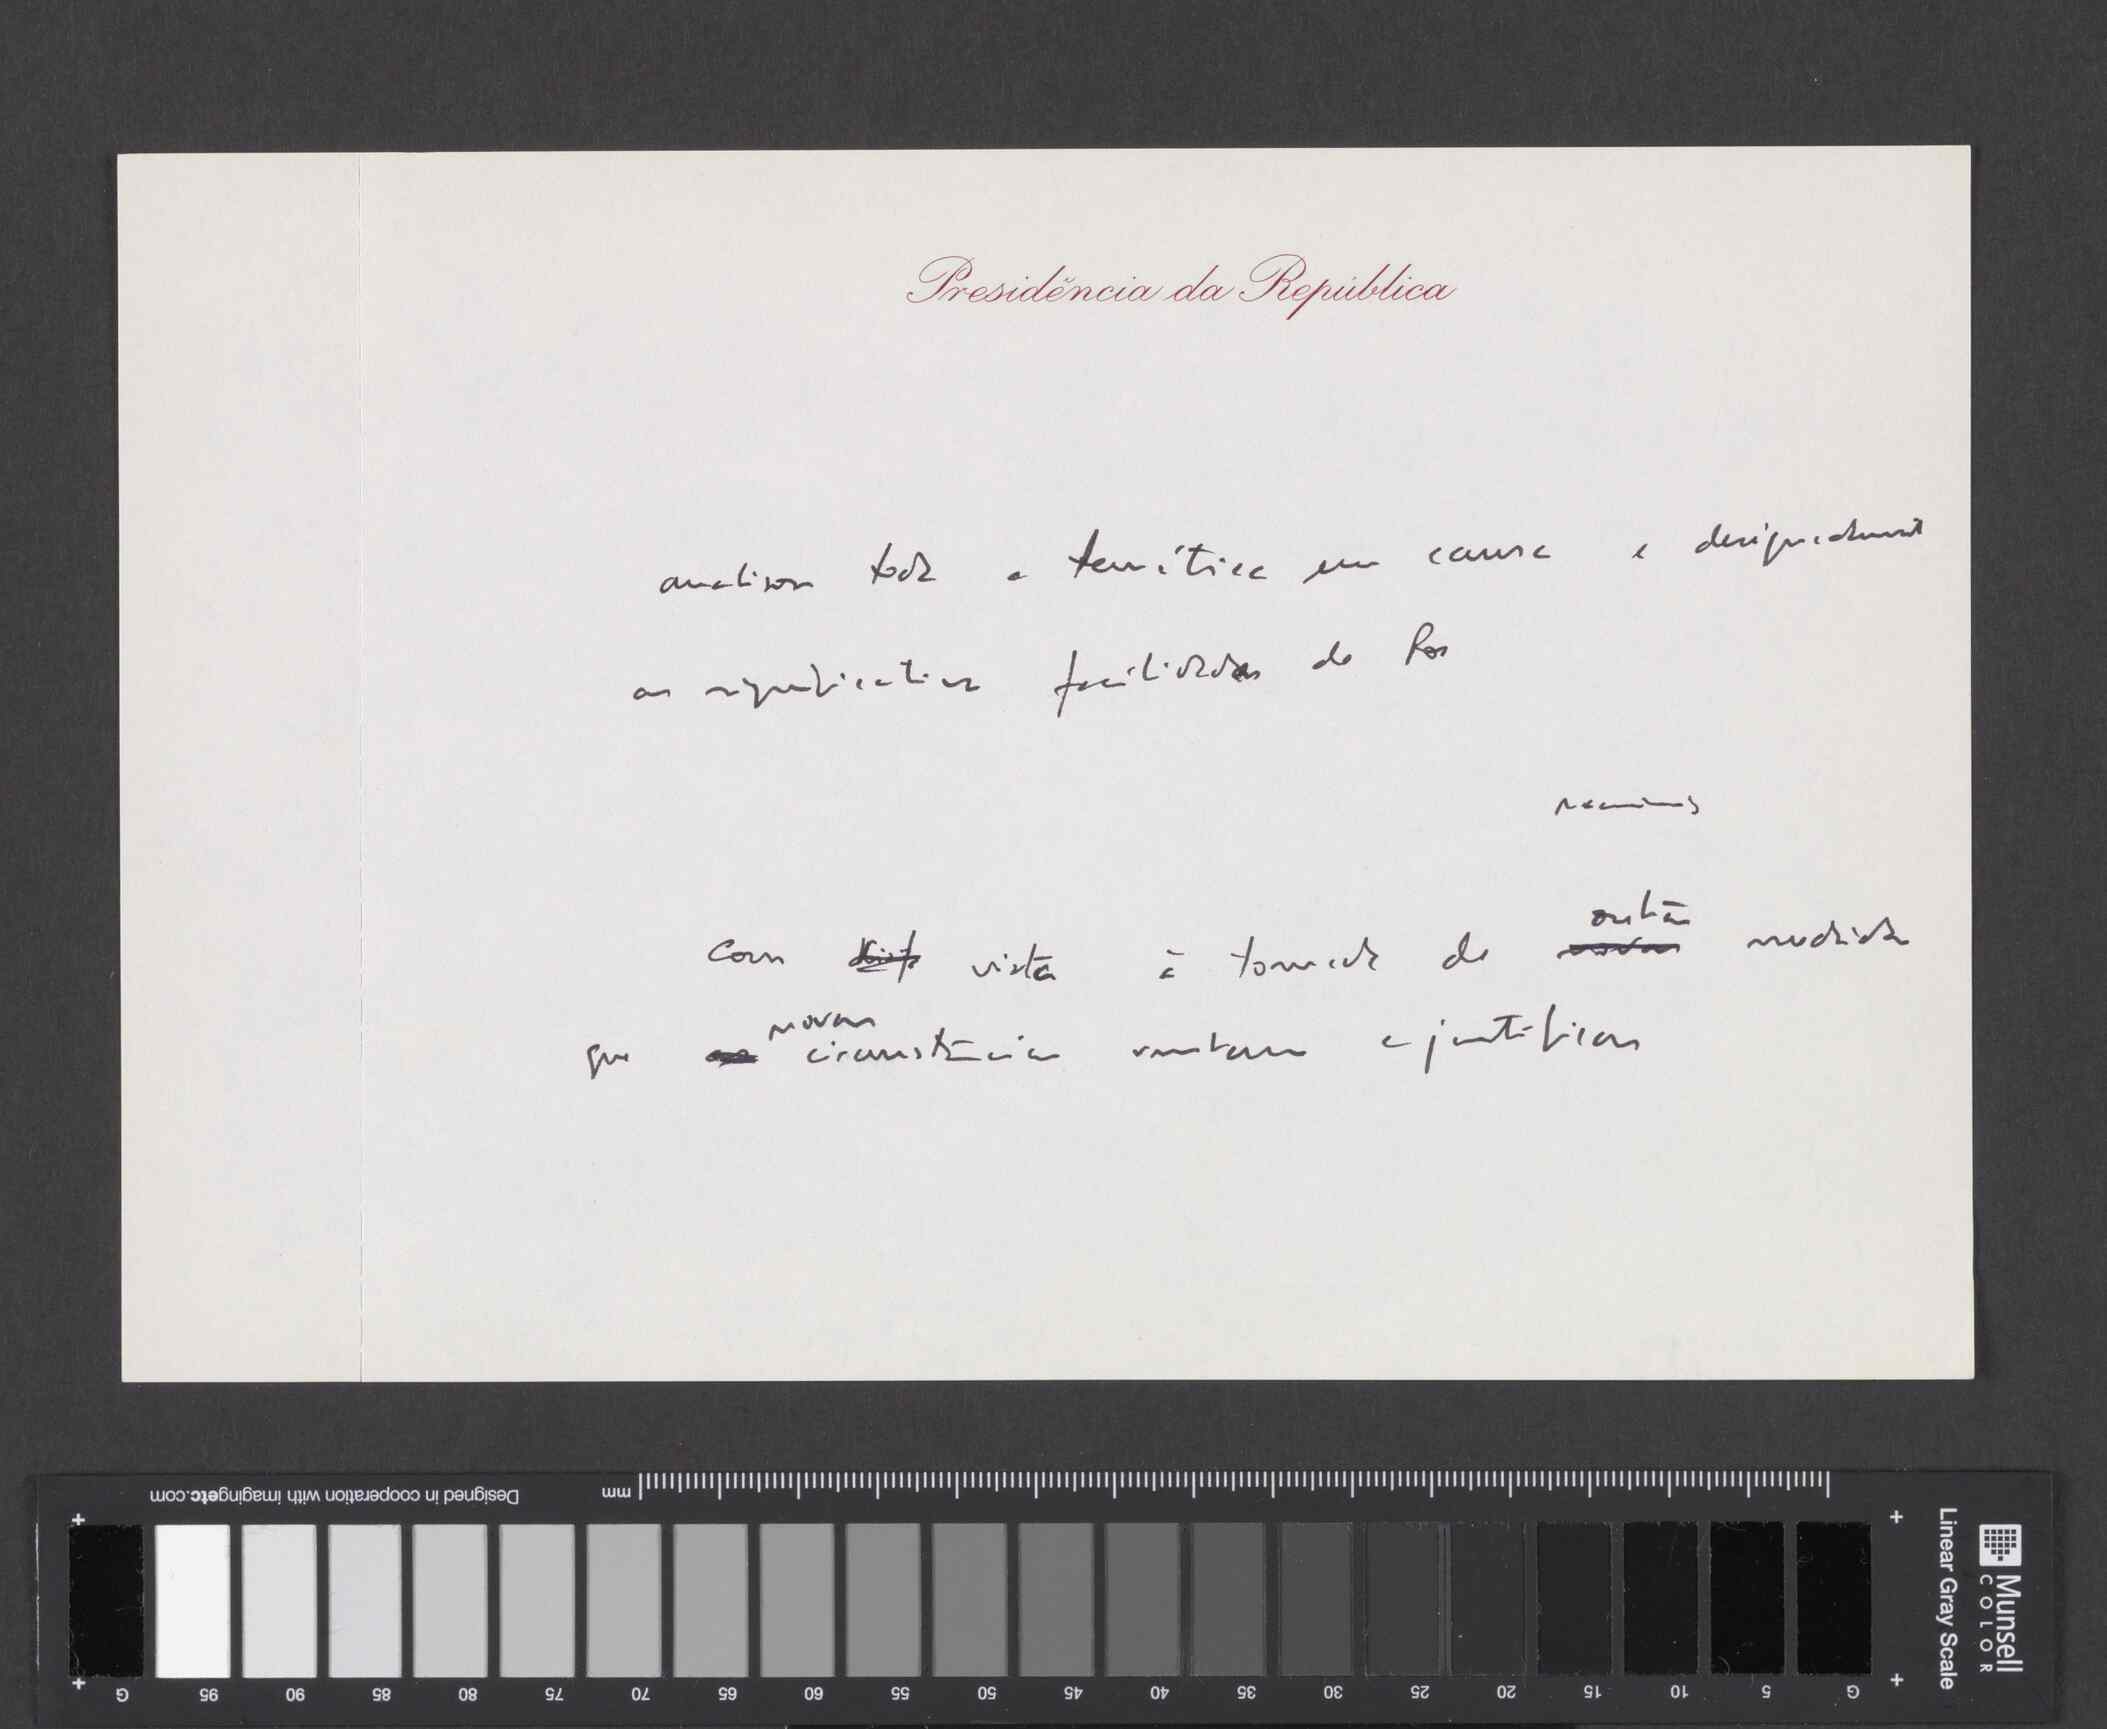 Presidência da República
analisar toda a temática em causa e designadamente
as significativas facilidades de
Com vista à tomada de outras medidas
que novas circunstâncias venham a justificar
Designed in cooperation with imagingetc.com
mm
G 95 90 85 80 75 70 65 60 55 50 45 40 35 30 25 20 15 10 5 G
Linear Gray Scale
Munsell
COLOR